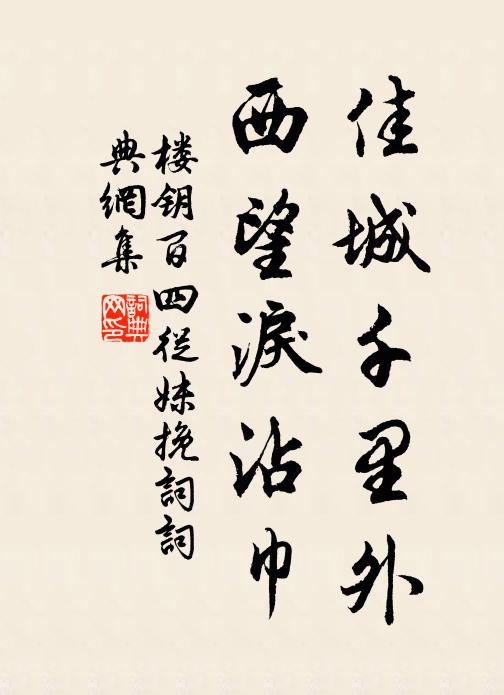 佳城千里外
西望淚沾巾
楼钥百四從妹挽詞詞
典網集
詞典
网印